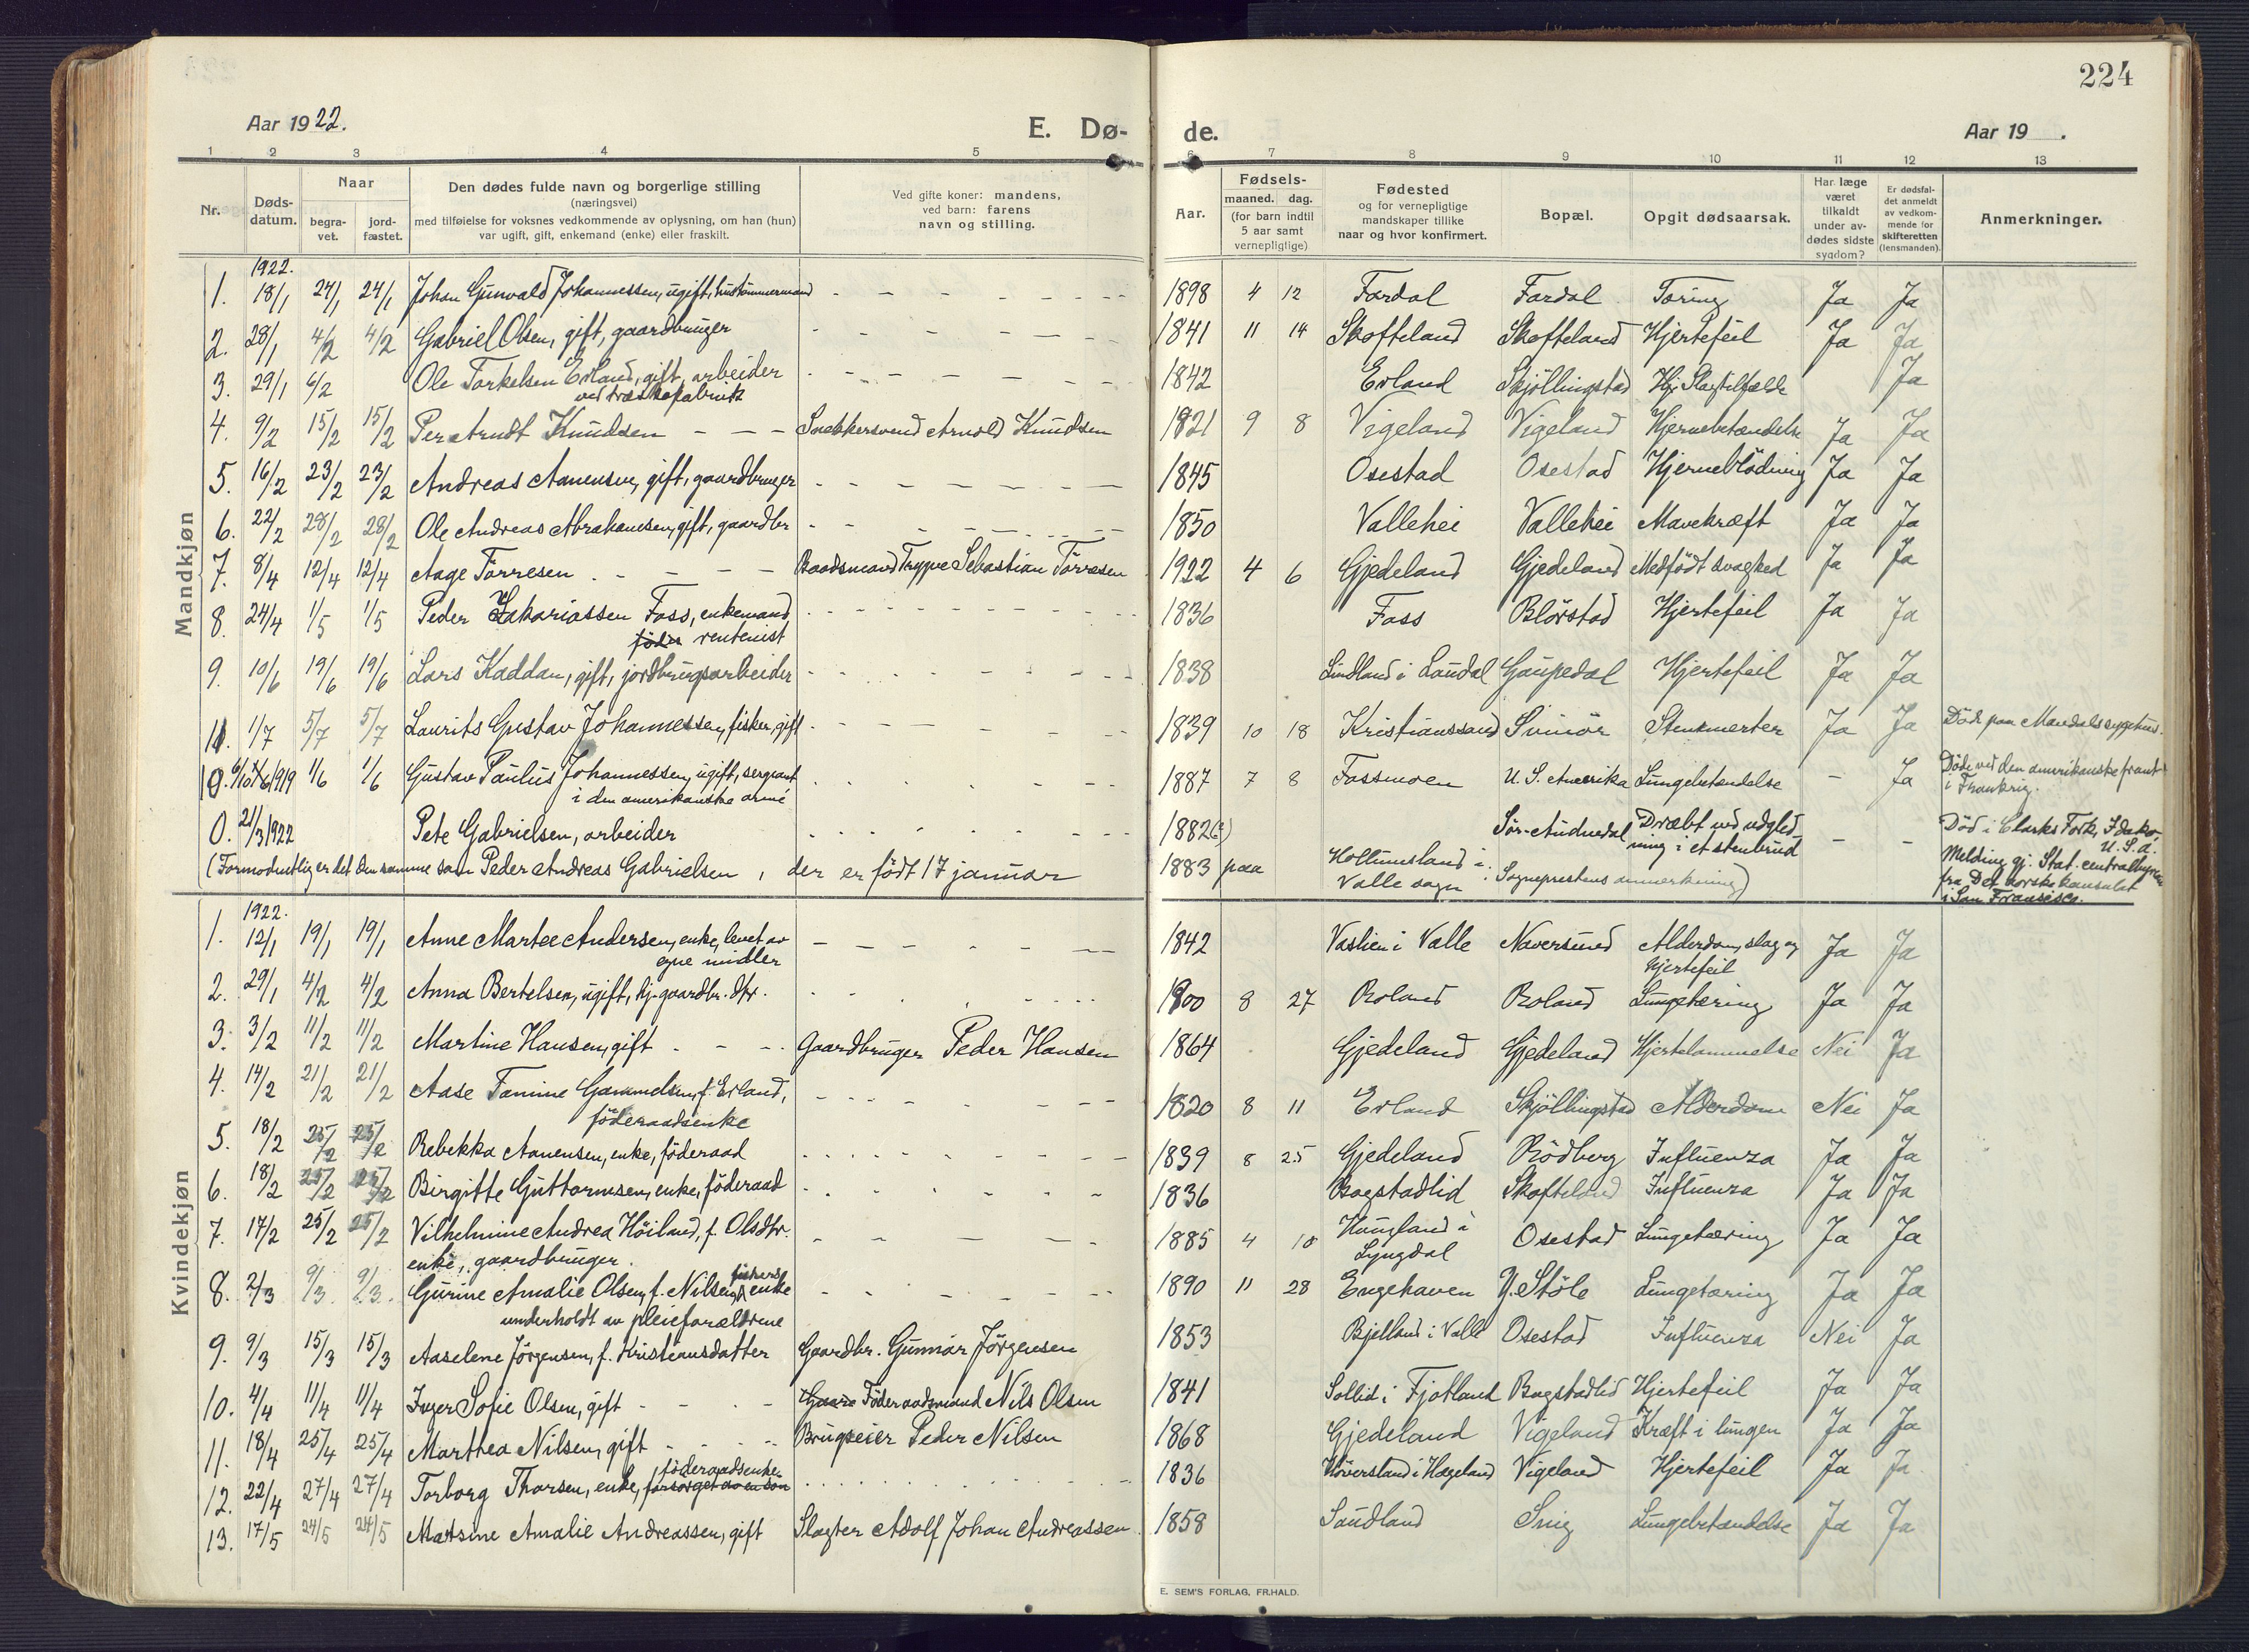 224
Aar 1922. E. Dø- de. Aar 19 .
1 2 3 4 5 6 7 8 9 10 11 12 13
Nr. Døds-datum. Naar begra-vet. jord-fæstet. Den dødes fulde navn og borgerlige stilling (næringsvei) med tilføielse for voksnes vedkommende av oplysning, om han (hun) var ugift, gift, enkemand (enke) eller fraskilt. Ved gifte koner: mandens, ved barn: farens navn og stilling. Aar. Fødsels- maaned. dag. (for barn indtil 5 aar samt vernepligtige) Fødested og for vernepligtige mandskaper tillike naar og hvor konfirmert. Bopæl. Opgit dødsaarsak. Har læge været tilkaldt under av-dødes sidste sygdom? Er dødsfal-det anmeldt av vedkom-mende for skifteretten (lensmanden). Anmerkninger.
Mandkjøn
1922.
1. 18/1 24/1 24/1 Johan Gunvald Johannessen, ugift, hustømmermand - - - 1898 4 12 Fardal Fardal Tæring Ja Ja
2. 28/1 4/2 4/2 Gabriel Olsen, gift, gaardbruger - - - 1841 11 14 Skofteland Skofteland Hjertefeil Ja Ja
3. 29/1 6/2 Ole Torkelsen Erland, gift, arbeider - - - 1842 Erland Skjöllingstad Hj. Slagtilfælde Ja
ved træskofabrik
4. 9/2 15/2 15/2 Per Arndt Knudsen - - - Snekkersvend Arnold Knudsen 1921 9 8 Vigeland Vigeland Hjernebetændelse Ja Ja
5. 16/2 23/2 23/2 Andreas Aanensen, gift, gaardbruger - - - 1845 Osestad Osestad Hjerneblödning Ja Ja
6. 22/2 28/2 28/2 Ole Andreas Abrahamsen, gift, gaardbr - - - 1850 Vallehei Vallehei Mavekræft Ja Ja
7. 8/4 12/4 12/4 Aage Törresen - - - Baadsmand Trygve Sebastian Törresen 1922 4 6 Gjedeland Gjedeland Medfödt svaghed Ja Ja
8. 24/4 1/5 1/5 Peder Zakariassen Foss, enkemand, - - - 1836 Foss Blörstad Hjertefeil Ja Ja
föder rentenist
9. 10/6 19/6 19/6 Lars Kaddan, gift, jordbrugsarbeider - - - 1838 Lindland i Laudal Gaupedal Hjertefeil Ja Ja
11. 1/7 5/7 5/7 Laurits Gustav Johannessen, fisker, gift - - - 1839 10 18 Kristianssand Svinör Stensmerter Ja Ja Döde paa Mandals sygehus.
10. 1919 1/6 1/6 Gustav Paulus Johannessen, ugift, sergeant - - - 1887 7 8 Fossmoen U. S. Amerika Lungebetændelse - Ja Döde ved den amerikanske front
i den amerikanske armé i Frankrig.
0. 21/3 1922 Pete Gabrielsen, arbeider - - - 1882(?) Sör-Audnedal Dræbt ved udglid- - - Död i Clarks Fork, Idaho,
ning i et stenbrud U.S.a.
(Formodentlig er det den samme som Peder Andreas Gabrielsen, der er födt 17 januar 1883 paa Hollumsland i Valle sogn Sogneprestens anmerkning) Melding gj. Stat. centralbyraa
fra Det norske konsulat
i San Fransisco.
Kvindekjøn
1922.
1. 12/1 19/1 19/1 Anne Martee Andersen, enke, levet av - - - 1842 Vaslien i Valle Naversund Alderdom, slag og Ja Ja
egne midler hjertefeil
2. 29/1 4/2 4/2 Anna Bertelsen, ugift, hj. gaardbr. dtr. - - - 1900 8 27 Roland Roland Lungetæring Ja Ja
3. 3/2 11/2 11/2 Martine Hansen, gift - - - Gaardbruger Peder Hansen 1864 Gjedeland Gjedeland Hjertelammelse Nei Ja
4. 14/2 21/2 21/2 Aase Tomine Gommelsen, f. Erland, - - - 1820 8 11 Erland Skjöllingstad Alderdom Nei Ja
föderaadsenke
5. 18/2 25/2 25/2 Rebekka Aanensen, enke, föderaad - - - 1839 8 25 Gjedeland Rödberg Influenza Ja Ja
6. 18/2 25/2 25/2 Birgitte Guttormsen, enke, föderaad - - - 1836 Bogstadlid Skofteland Influenza Ja Ja
7. 17/2 25/2 25/2 Vilhelmine Andrea Höiland, f. Olsdtr. - - - 1885 4 10 Haugland i Osestad Lungetæring Ja Ja
enke, gaardbruger. Lyngdal
8. 2/3 9/3 9/3 Gurine Amalie Olsen, f. Nilsen, fiskers enke - - - 1890 11 28 Engehaven Y. Stöle Lungetæring Ja Ja
underholdt av pleieforældrene
9. 9/3 15/3 15/3 Aaselene Jörgensen, f. Kristiansdatter Gaardbr. Gunnar Jörgensen 1853 Bjelland i Valle Osestad Influenza Nei Ja
10. 4/4 11/4 11/4 Inger Sofie Olsen, gift - - - Gaard Föderaadsmand Nils Olsen 1841 Sollid i Fjotland Bogstadlid Hjertefeil Ja Ja
11. 18/4 25/4 25/4 Marthea Nilsen, gift - - - Brugseier Peder Nilsen 1868 Gjedeland Vigeland Kræft i lungen Ja Ja
föderaadsenke
12. 22/4 27/4 27/4 Torborg Thorsen, enke, forsörget av en sön - - - 1836 Höversland i Hægeland Vigeland Hjertefeil Ja Ja
13. 17/5 24/5 24/5 Martine Amalie Andreassen, gift Slagter Adolf Johan Andreassen 1858 Saudland Snig Lungebetændelse Ja Ja
E. SEM'S FORLAG, FR.HALD.